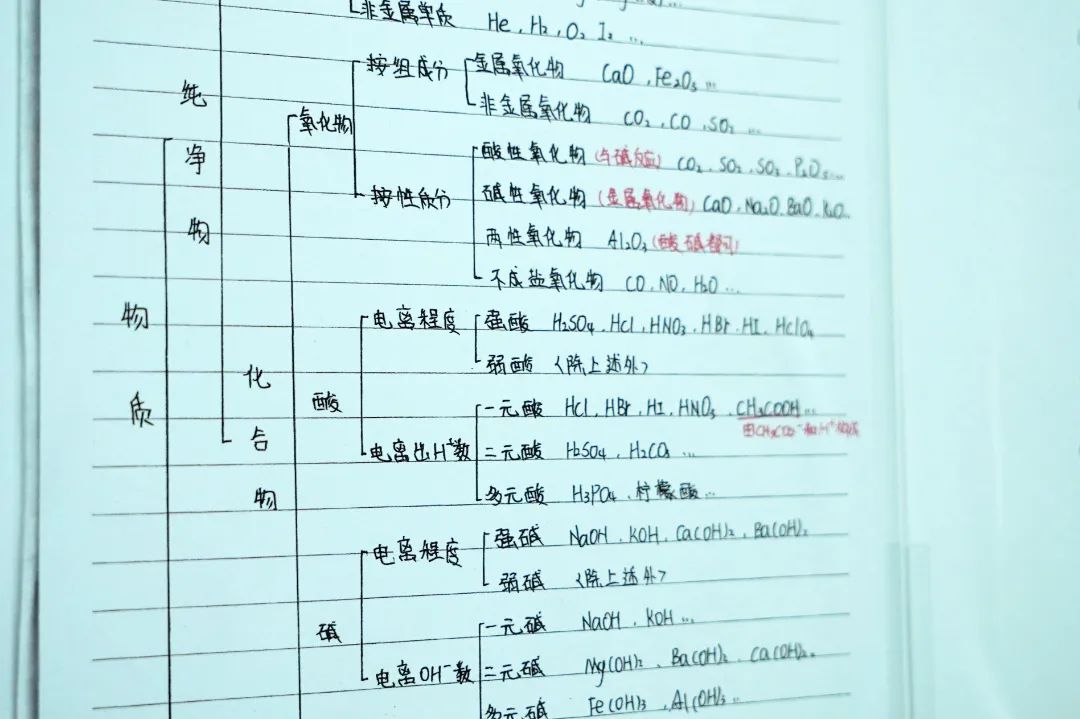 非金属单质 He, H₂, O₂ I₂ ...
按组成分 金属氧化物 CaO, Fe₂O₃ ...
非金属氧化物 CO₂, CO, SO₂ ...
纯净物
氧化物
酸性氧化物 (与碱反应) CO₂, SO₂, SO₃, P₂O₅ ...
按性质分 碱性氧化物 (金属氧化物) CaO, Na₂O, BaO, K₂O...
两性氧化物 Al₂O₃ (酸碱都可)
不成盐氧化物 CO, NO, H₂O ...
物质
电离程度 强酸 H₂SO₄, HCl, HNO₃, HBr, HI, HClO₄
弱酸 〈除上述外〉
化合物
酸
一元酸 HCl, HBr, HI, HNO₃, CH₃COOH ...
由CH₃COO⁻和H⁺构成
电离出H⁺数 二元酸 H₂SO₄, H₂CO₃ ...
多元酸 H₃PO₄, 柠檬酸 ...
电离程度 强碱 NaOH, KOH, Ca(OH)₂, Ba(OH)₂
弱碱 〈除上述外〉
碱
一元碱 NaOH, KOH ...
电离OH⁻数 二元碱 Mg(OH)₂, Ba(OH)₂, Ca(OH)₂.
多元碱 Fe(OH)₃, Al(OH)₃ ...